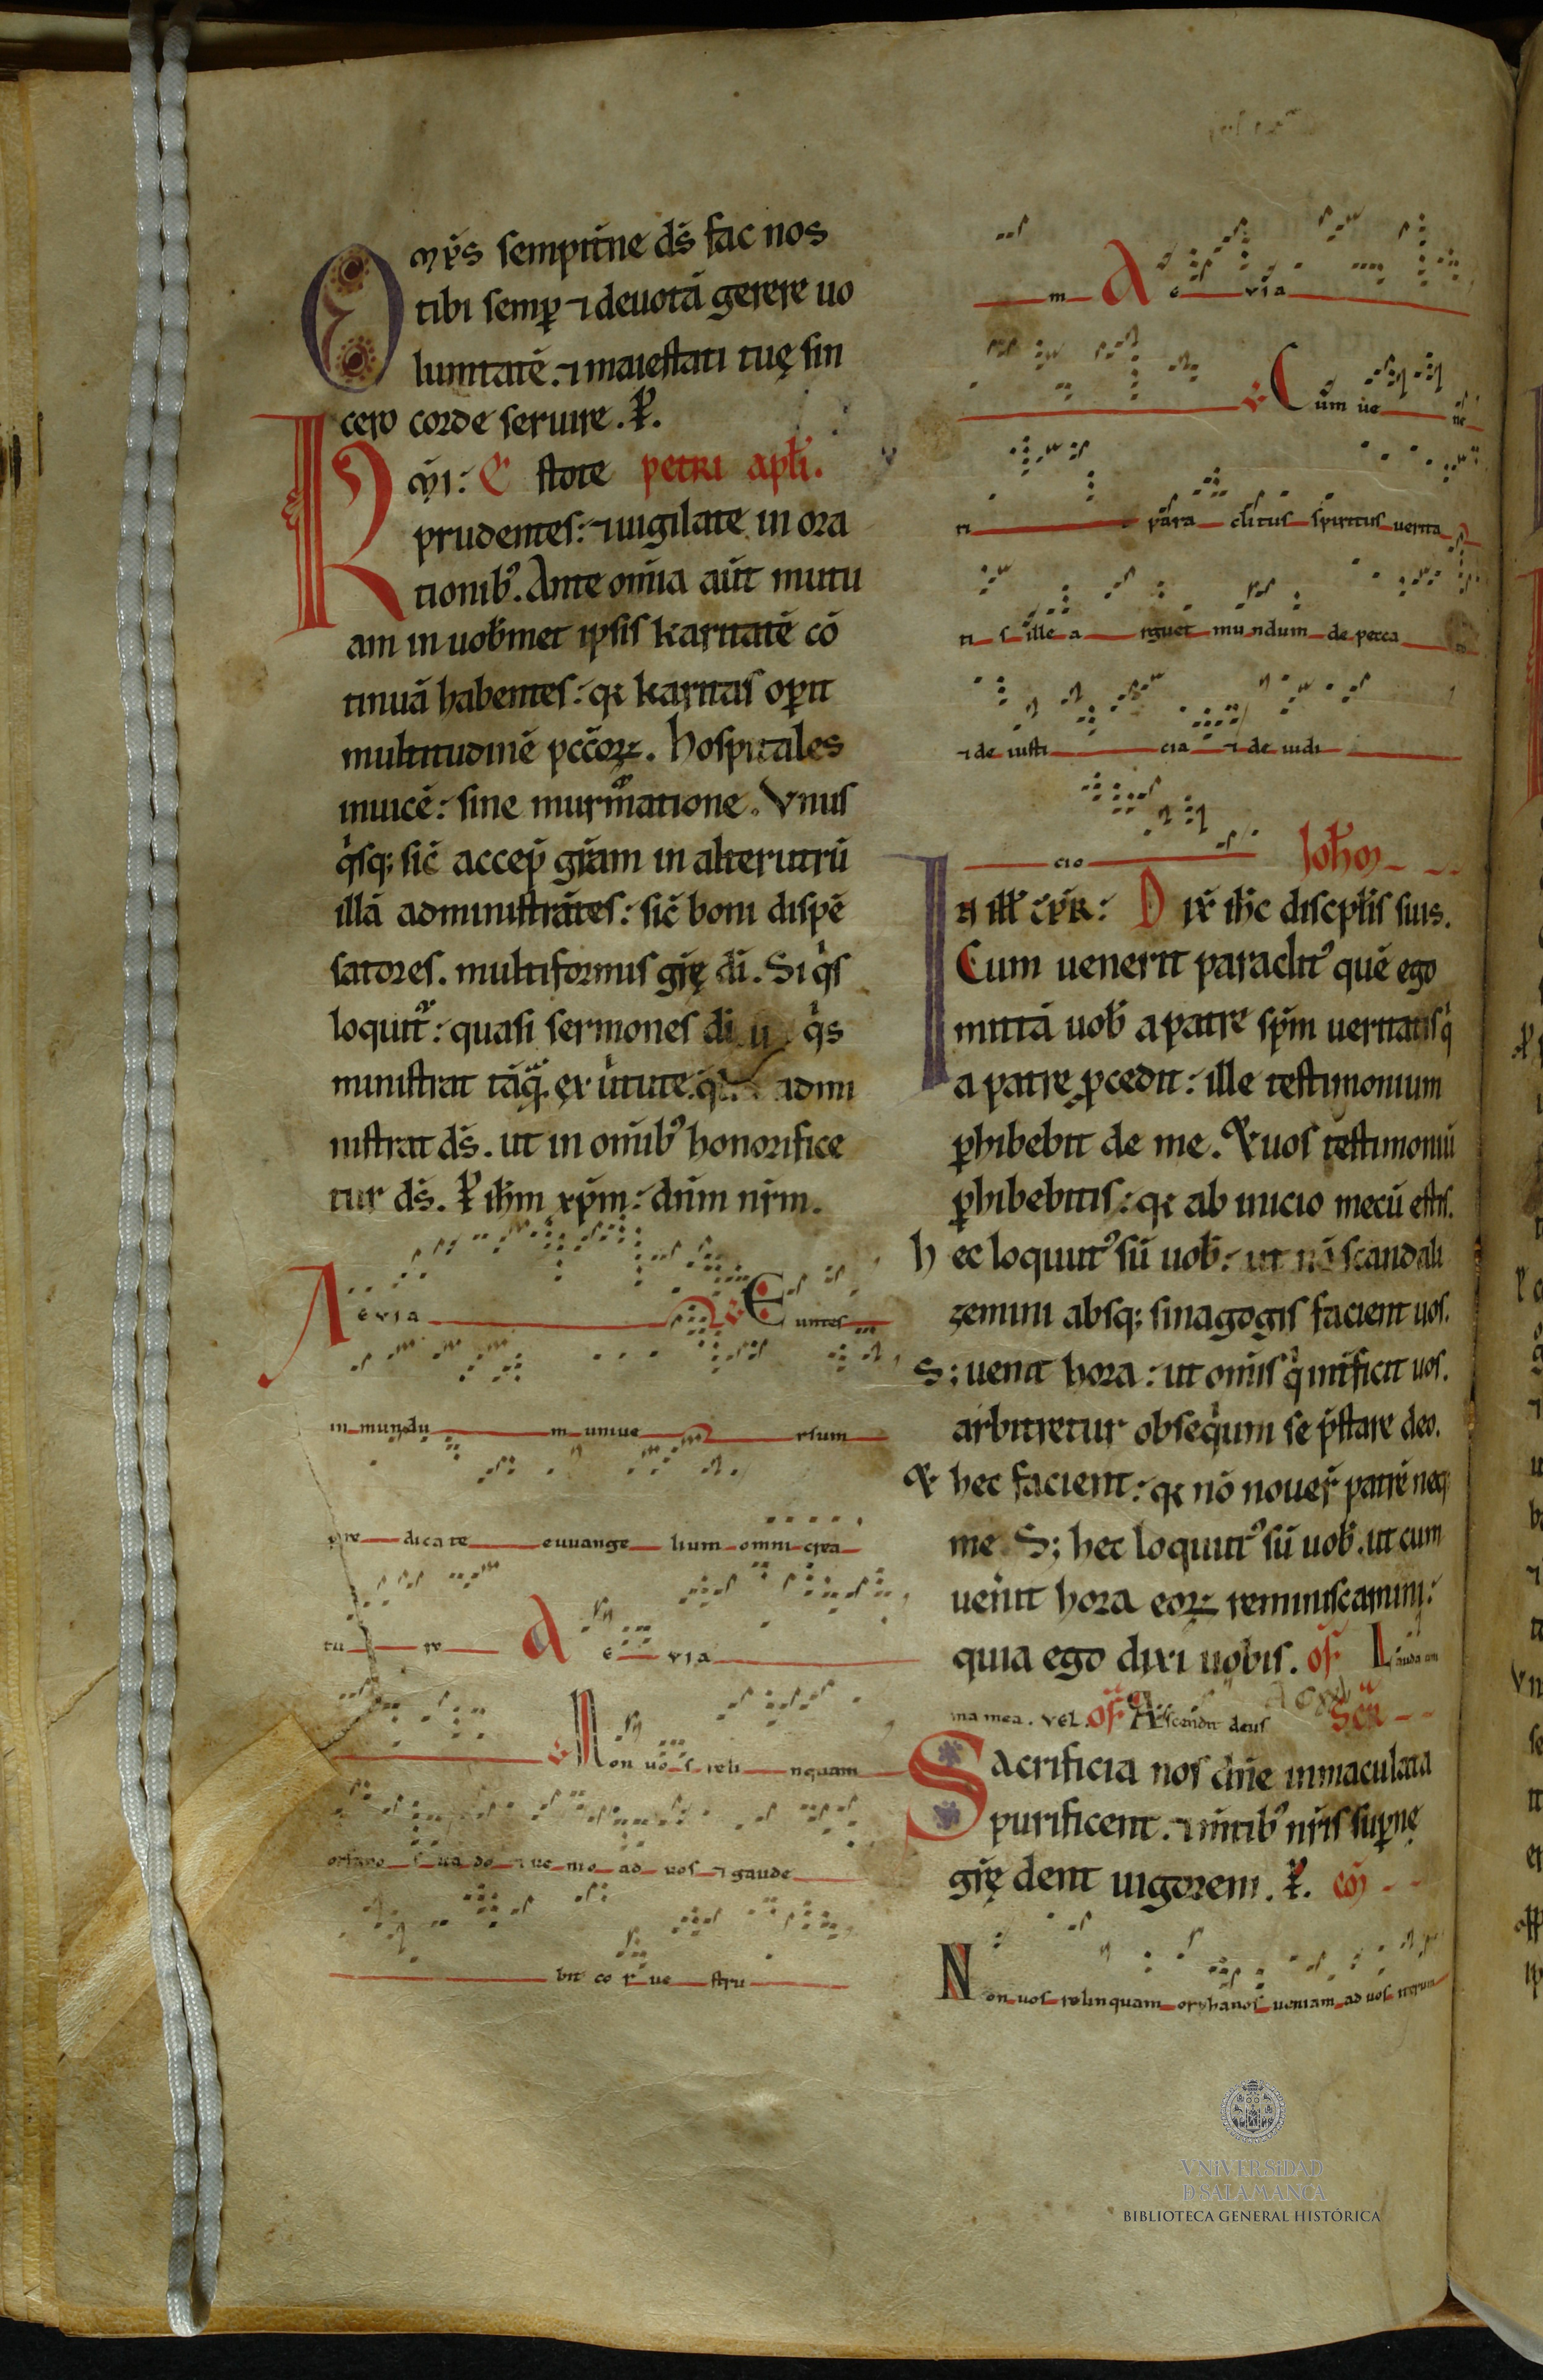 Om̅ps sempit̅ne ds̅ fac nos
tibi semꝑ ⁊ deuotā gerere uo
luntatē. ⁊ maiestati tuę sin
cero corde seruire. P̲.
Km̅i: E stote petri apl̅i.
prudentes: ⁊ uigilate in ora
tionibꝰ. Ante om̅ia aūt mutu
am in uob̅met ipsis karitatē cō
tinuā habentes: qꝛ karitas oꝑit
multitudinē pcc̅oꝝ. Hospitales
inuicē: sine murm̅atione. Vnus
qͥsqꝫ sic̅ accep̅ gr̅am in alterutrū
illā administrātes: sic̅ boni dispē
satores. multiformis gr̅ę di̅. Si qͥs
loquit᷑: quasi sermones di̅. qͥs
ministrat tāqᷓ. ex uir̅tute. admi
nistrat ds̅. ut in om̅ibꝰ honorifice
tur ds̅. P̲ ih̅m xp̅m: dn̅m nr̅m.
A evia ℣ Euntes
in mundu m uniue rsum
pre dicate euuange lium omni crea
tu re A e via
℣ Non uo s reli nquam
orfano s ua do ⁊ ue nio ad uos ⁊ gaude
bit co r ue stru
m A e via
℣ Cum ue ne
ri t para clitus spiritus uerita
ti s ille a rguet mundum de pecca to
⁊ de iusti cia ⁊ de iudi
cio Ioh̅m
In ill̅ t̅pr̅: Dix̅ ih̅c discipl̅is suis.
Cum uenerit paraclitꝰ quē ego
mittā uob̅ a patre sp̅m ueritatis qͥ
a patre ꝓcedit: ille testimonium
ꝑhibebit de me. Et uos testimoniū
ꝑhibebitis: qꝛ ab inicio mecū estis.
hec loquutꝰ sū uob̅: ut nō scandali
zemini absqꝫ sinagogis facient uos.
Sꝫ uenit hora: ut om̅is qͥ int̅ficit uos.
arbitretur obseqͥum se p̅stare deo.
Et hec facient: qꝛ nō nouer̅ patrē neqꝫ
me. Sꝫ hec loquutꝰ sū uob̅. ut cum
uen̅it hora eoꝝ reminiscamini:
quia ego dixi uobis. of̅ Lauda ani
ma mea. vel. of̅ Ascendit deus Scr̅
Sacrificia nos dn̅e inmaculata
purificent. ⁊ m̅tibꝰ nr̅is suꝑnę
gr̅ę dent uigorem. P̲. co̅m
Non uos relinquam orphanos ueniam ad uos iterum
VNiVERSiDAD
D SALAMANCA
BIBLIOTECA GENERAL HISTÓRICA